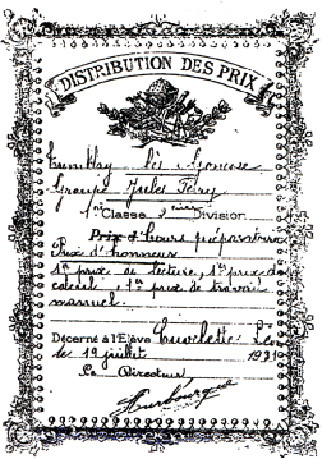 DISTRIBUTION DES PRIX
Tremblay lès Gonesse
Groupe Jules Ferry
Classe Division
Prix d' Cours préparatoire
Prix d'honneur
1er prix de lecture, 1er prix de
calcul, 1er prix de travail
manuel.
Décerné à l'Élève
le 19 juillet 1931
Le Directeur